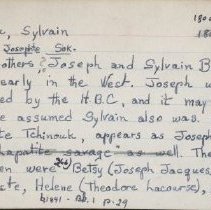 , Sylvain
180
Josephte Sok.
18
others, Joseph and Sylvain B
early in the West. Joseph w
ed by the H.B.C, and it may
e assumed Sylvain also was.
te Tchinouk, appears as Joseph
hapalite savage" as well. The
en were Betsy (Joseph Jacques
te, Helene (Theodore Lacourse),
b1841 - Bk.1 p.29